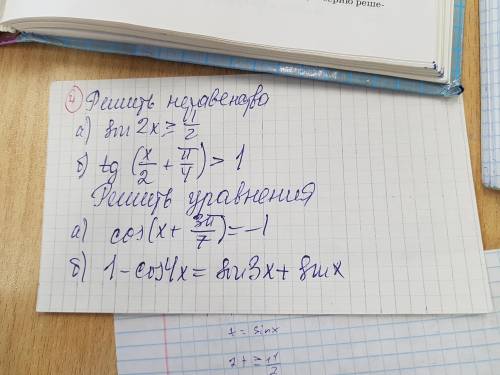 ерию реше-
4 Решить неравенство
а) sin 2x ≥ π/2
б) tg (x/2 + π/4) > 1
Решить уравнения
а) cos(x + 3π/7) = -1
б) 1 - cos4x = sin3x + sinx
t = sinx